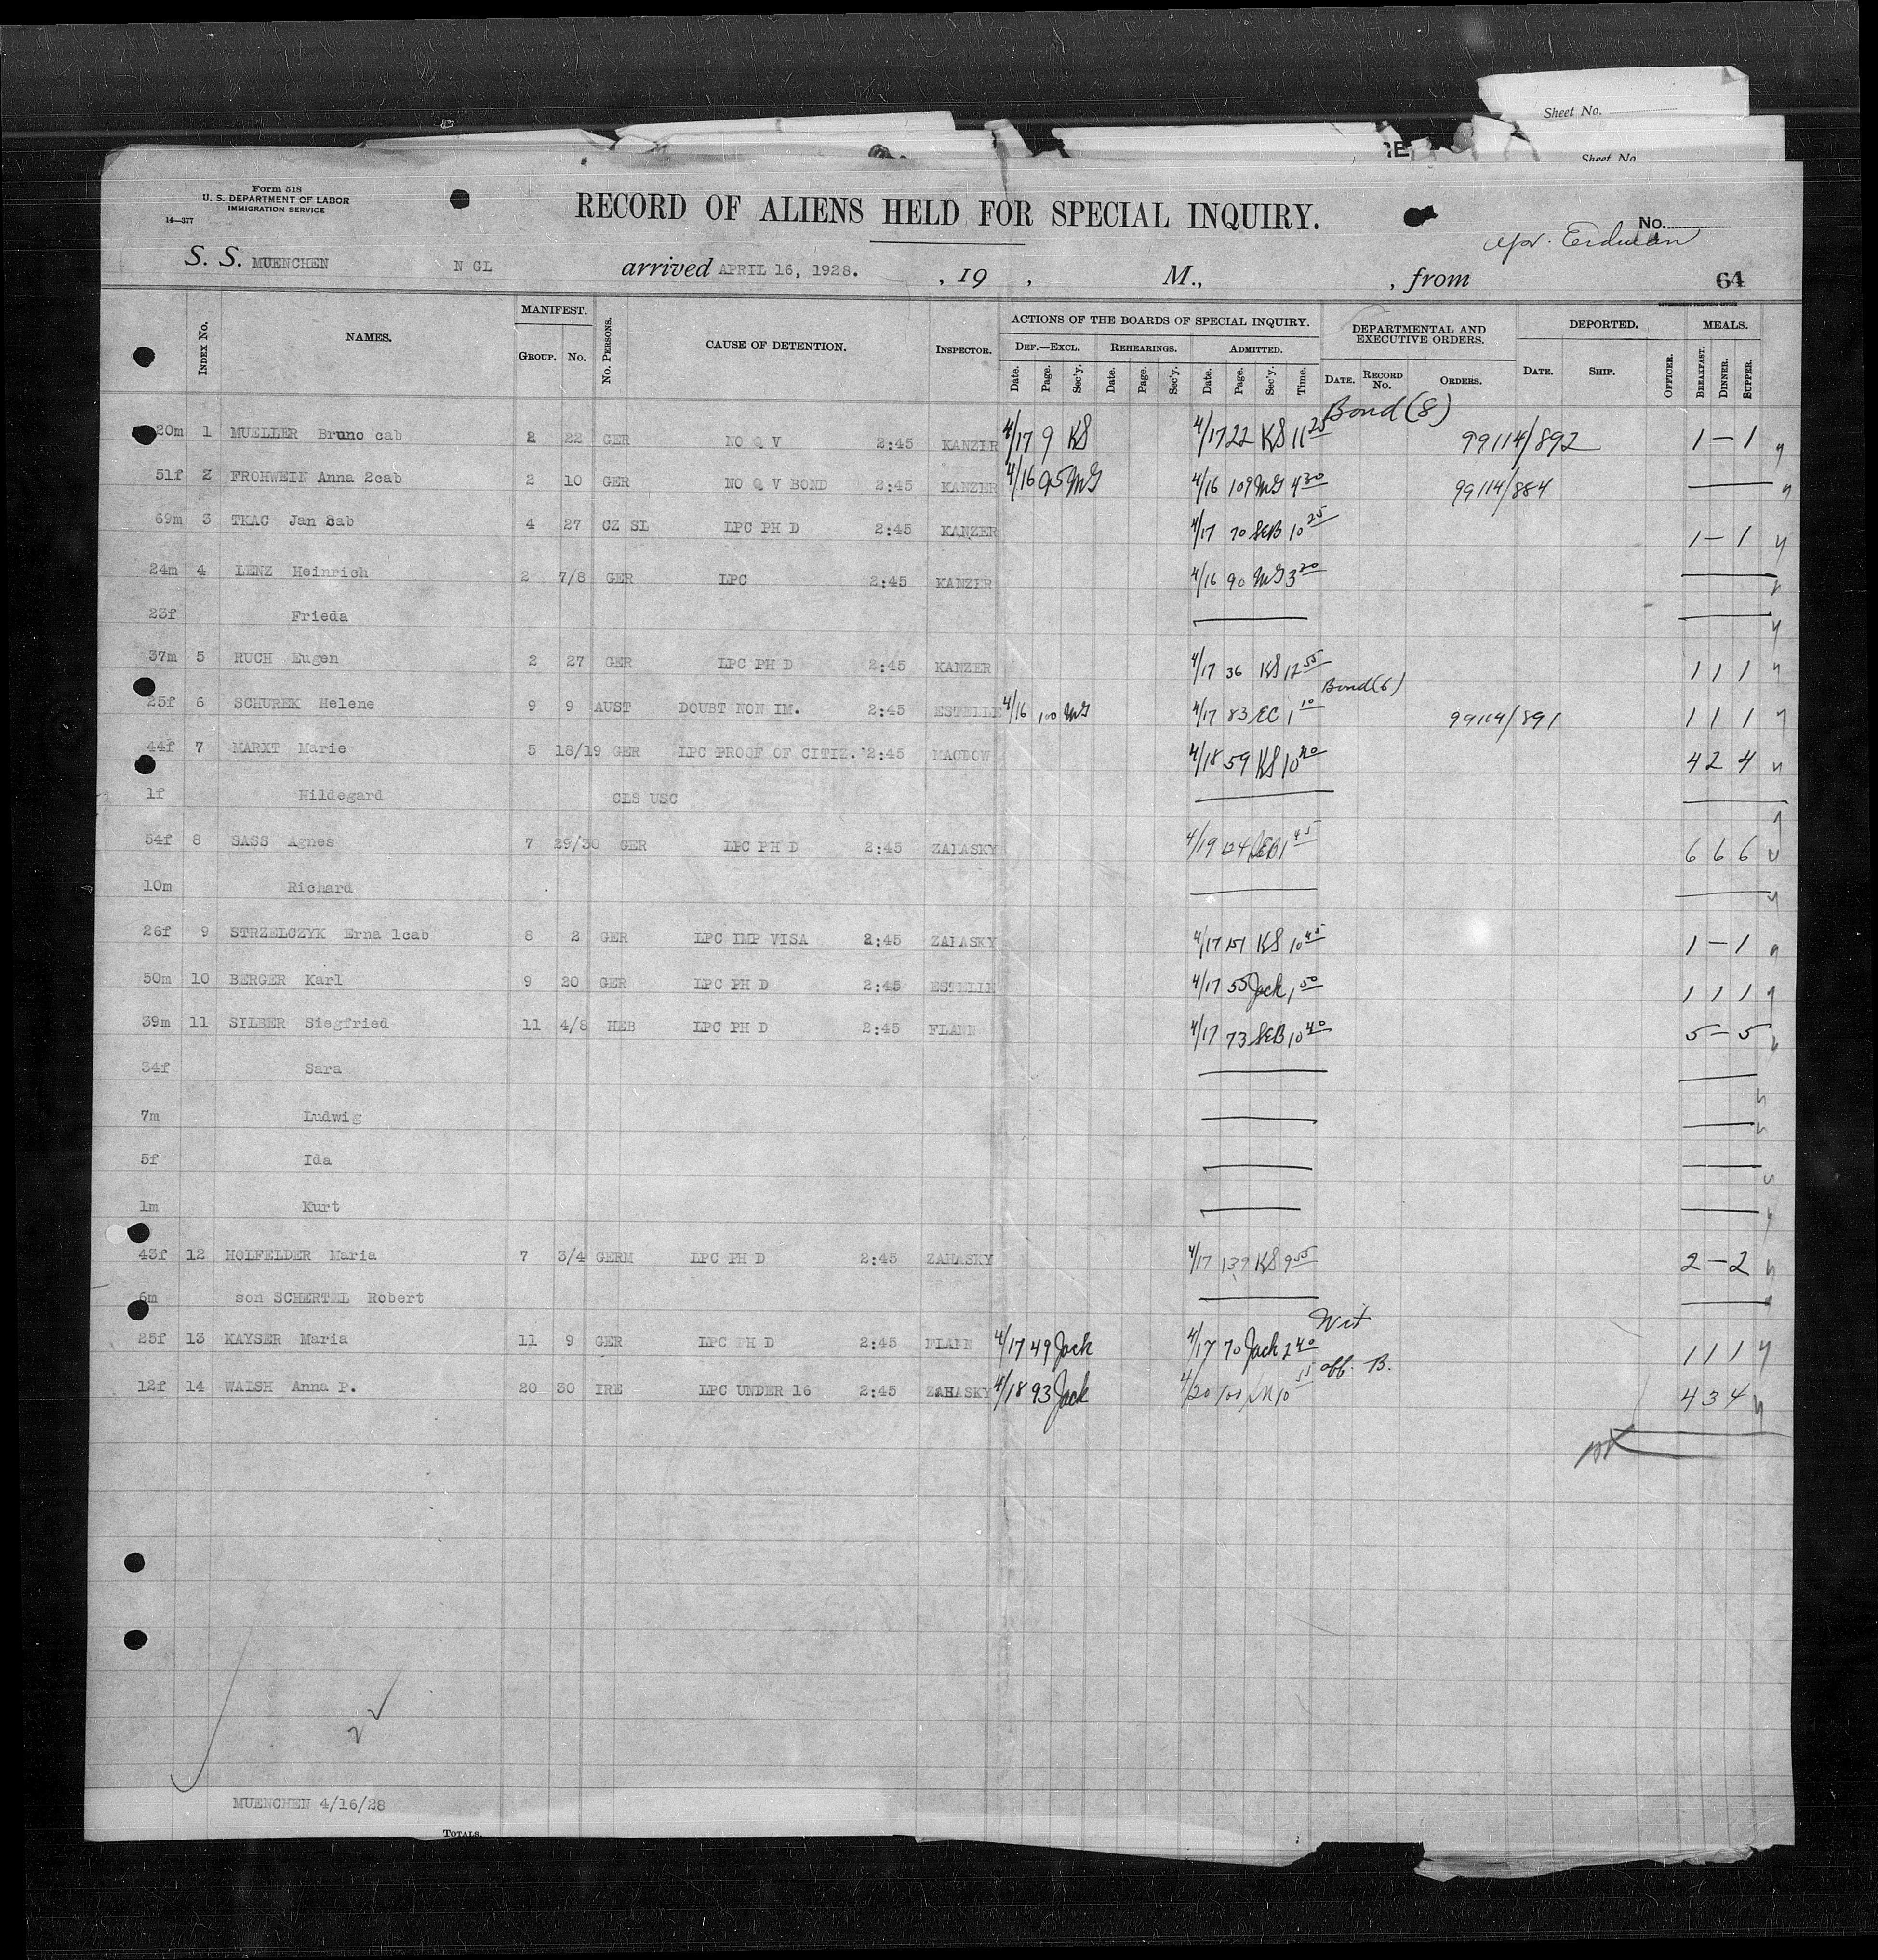 Sheet No.
Sheet No.
Form 518
U. S. DEPARTMENT OF LABOR
IMMIGRATION SERVICE
14—377
RECORD OF ALIENS HELD FOR SPECIAL INQUIRY.
No.
S. S. MUENCHEN N GL arrived APRIL 16, 1928. , 19 , M., , from 64
INDEX No. NAMES. MANIFEST. GROUP. No. No. PERSONS. CAUSE OF DETENTION. INSPECTOR. ACTIONS OF THE BOARDS OF SPECIAL INQUIRY. DEPARTMENTAL AND EXECUTIVE ORDERS. DEPORTED. MEALS.
DEF.—EXCL. REHEARINGS. ADMITTED.
Date. Page. Sec'y. Date. Page. Sec'y. Date. Page. Sec'y. Time. DATE. RECORD No. ORDERS. DATE. SHIP. OFFICER. BREAKFAST. DINNER. SUPPER.
Bond (8)
20m 1 MUELLER Bruno cab 2 22 GER NO Q V 2:45 KANZER 4/17 9 KS 4/17 22 KS 11 25 99114/892 1 — 1
51f 2 FROHWEIN Anna 2cab 2 10 GER NO Q V BOND 2:45 KANZER 4/16 95 MG 4/16 109 MG 4 30 99114/884 —
69m 3 TKAC Jan 2cab 4 27 CZ SL LPC PH D 2:45 KANZER 4/17 70 SEB 10 25 1 — 1
24m 4 LENZ Heinrich 2 7/8 GER LPC 2:45 KANZER 4/16 90 MG 3 20 —
23f Frieda — —
37m 5 RUCH Eugen 2 27 GER LPC PH D 2:45 KANZER 4/17 36 KS 12 55 1 1 1
Bond (6)
25f 6 SCHUREK Helene 9 9 AUST DOUBT NON IM. 2:45 ESTELLE 4/16 100 MG 4/17 83 EC 1 10 99114/891 1 1 1
44f 7 MARXT Marie 5 18/19 GER LPC PROOF OF CITIZ. 2:45 MACDOW 4/18 59 KS 10 40 4 2 4
1f Hildegard CLS USC — —
54f 8 SASS Agnes 7 29/30 GER LPC PH D 2:45 ZAHASKY 4/19 124 SEB 1 45 6 6 6
10m Richard — —
26f 9 STRZELCZYK Erna 1cab 8 2 GER LPC IMP VISA 2:45 ZAHASKY 4/17 151 KS 10 45 1 — 1
50m 10 BERGER Karl 9 20 GER LPC PH D 2:45 ESTELLE 4/17 55 Jack 1 50 1 1 1
39m 11 SILBER Siegfried 11 4/8 HEB LPC PH D 2:45 FLANN 4/17 73 SEB 10 40 5 — 5
34f Sara — —
7m Ludwig — —
5f Ida — —
1m Kurt — —
43f 12 HOLFELDER Maria 7 3/4 GERM LPC PH D 2:45 ZAHASKY 4/17 139 KS 9 55 2 — 2
6m son SCHERTEL Robert — —
25f 13 KAYSER Maria 11 9 GER LPC PH D 2:45 FLANN 4/17 49 Jack 4/17 70 Jack 2 40 Wit 1 1 1
12f 14 WALSH Anna P. 20 30 IRE LPC UNDER 16 2:45 ZAHASKY 4/18 93 Jack 4/20 10 55 off. B. 4 3 4
MUENCHEN 4/16/28
TOTALS.